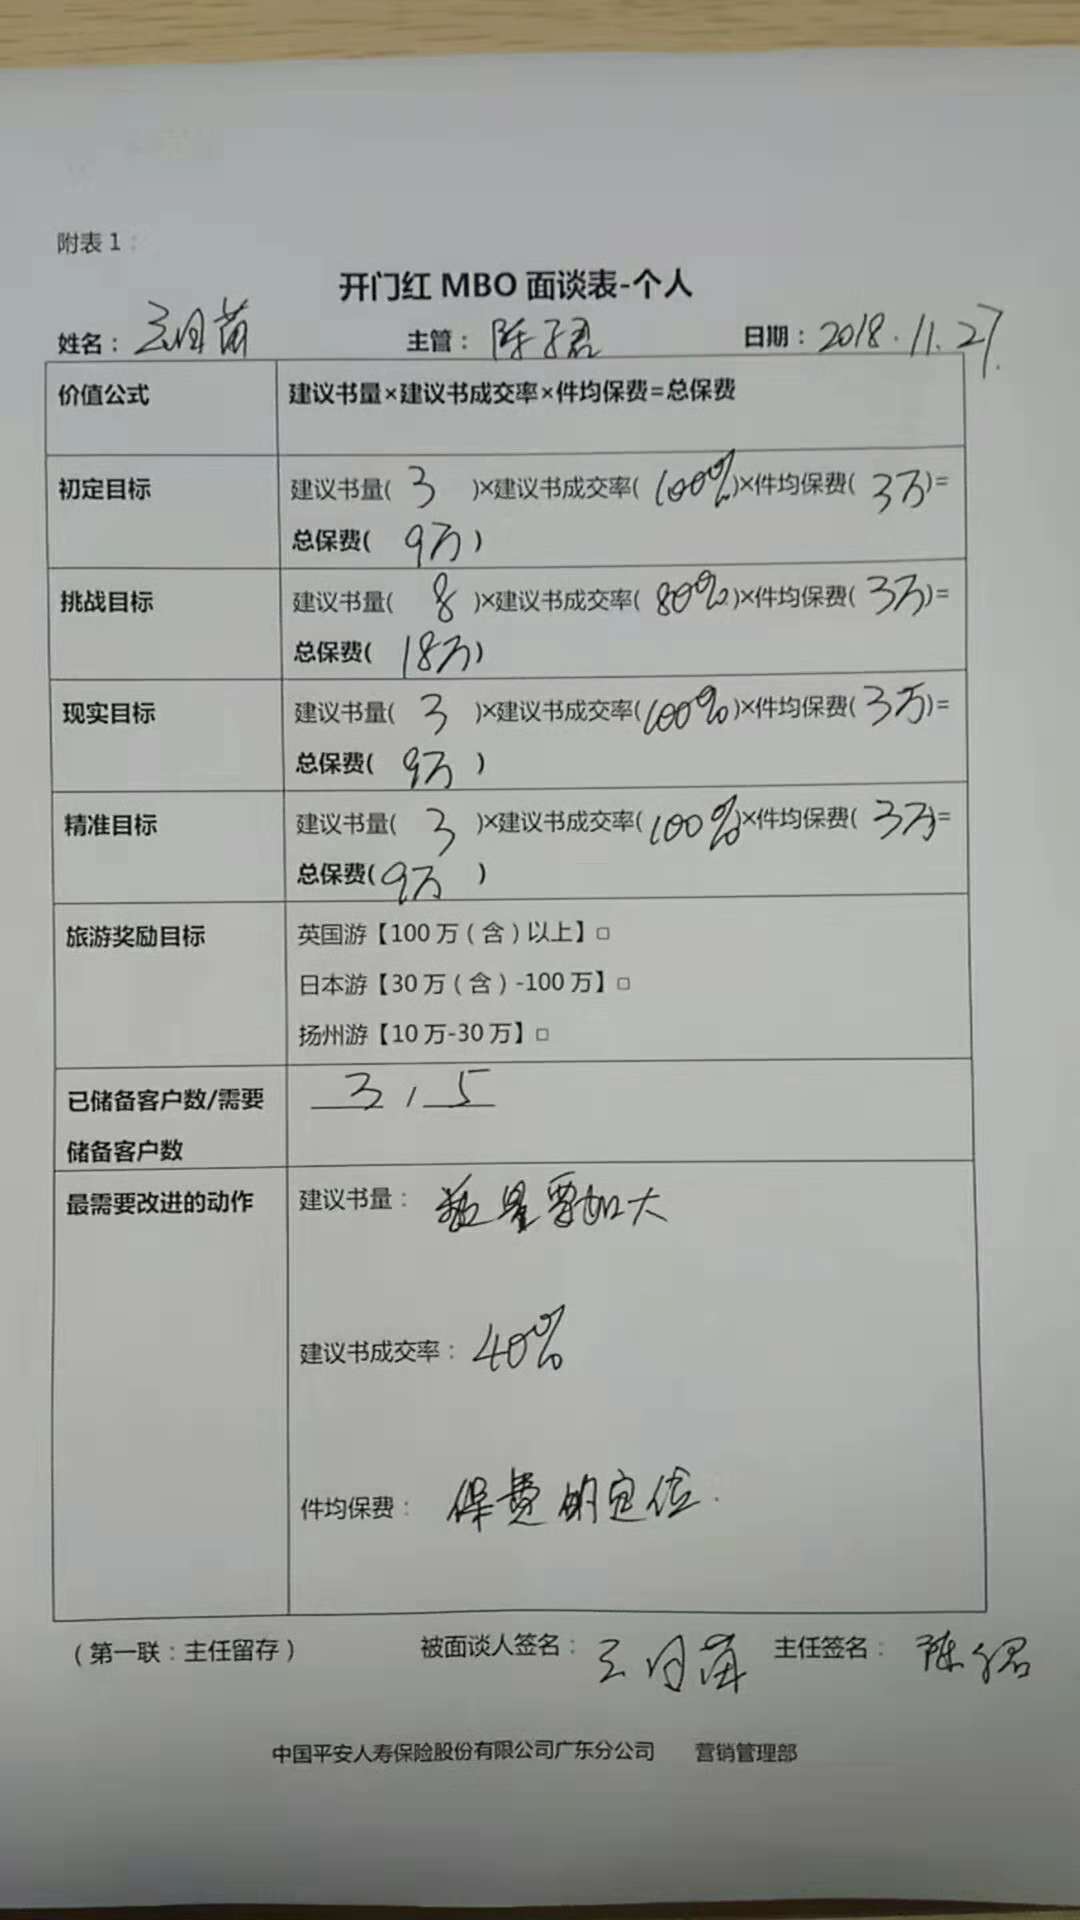 附表1：
开门红 MBO 面谈表-个人
姓名： 王月苗 主管： 陈 日期：2018.11.27.
价值公式 建议书量×建议书成交率×件均保费=总保费
初定目标 建议书量( 3 )×建议书成交率( 100% )×件均保费( 3万 )=
总保费( 9万 )
挑战目标 建议书量( 8 )×建议书成交率( 80% )×件均保费( 3万 )=
总保费( 18万 )
现实目标 建议书量( 3 )×建议书成交率( 100% )×件均保费( 3万 )=
总保费( 9万 )
精准目标 建议书量( 3 )×建议书成交率( 100% )×件均保费( 3万 )=
总保费( 9万 )
旅游奖励目标 英国游【100万（含）以上】□
日本游【30万（含）-100万】□
扬州游【10万-30万】□
已储备客户数/需要 3 / 5
储备客户数
最需要改进的动作 建议书量： 数量要加大
建议书成交率： 40%
件均保费： 保费的定位.
（第一联：主任留存） 被面谈人签名： 王月苗 主任签名： 陈
中国平安人寿保险股份有限公司广东分公司 营销管理部